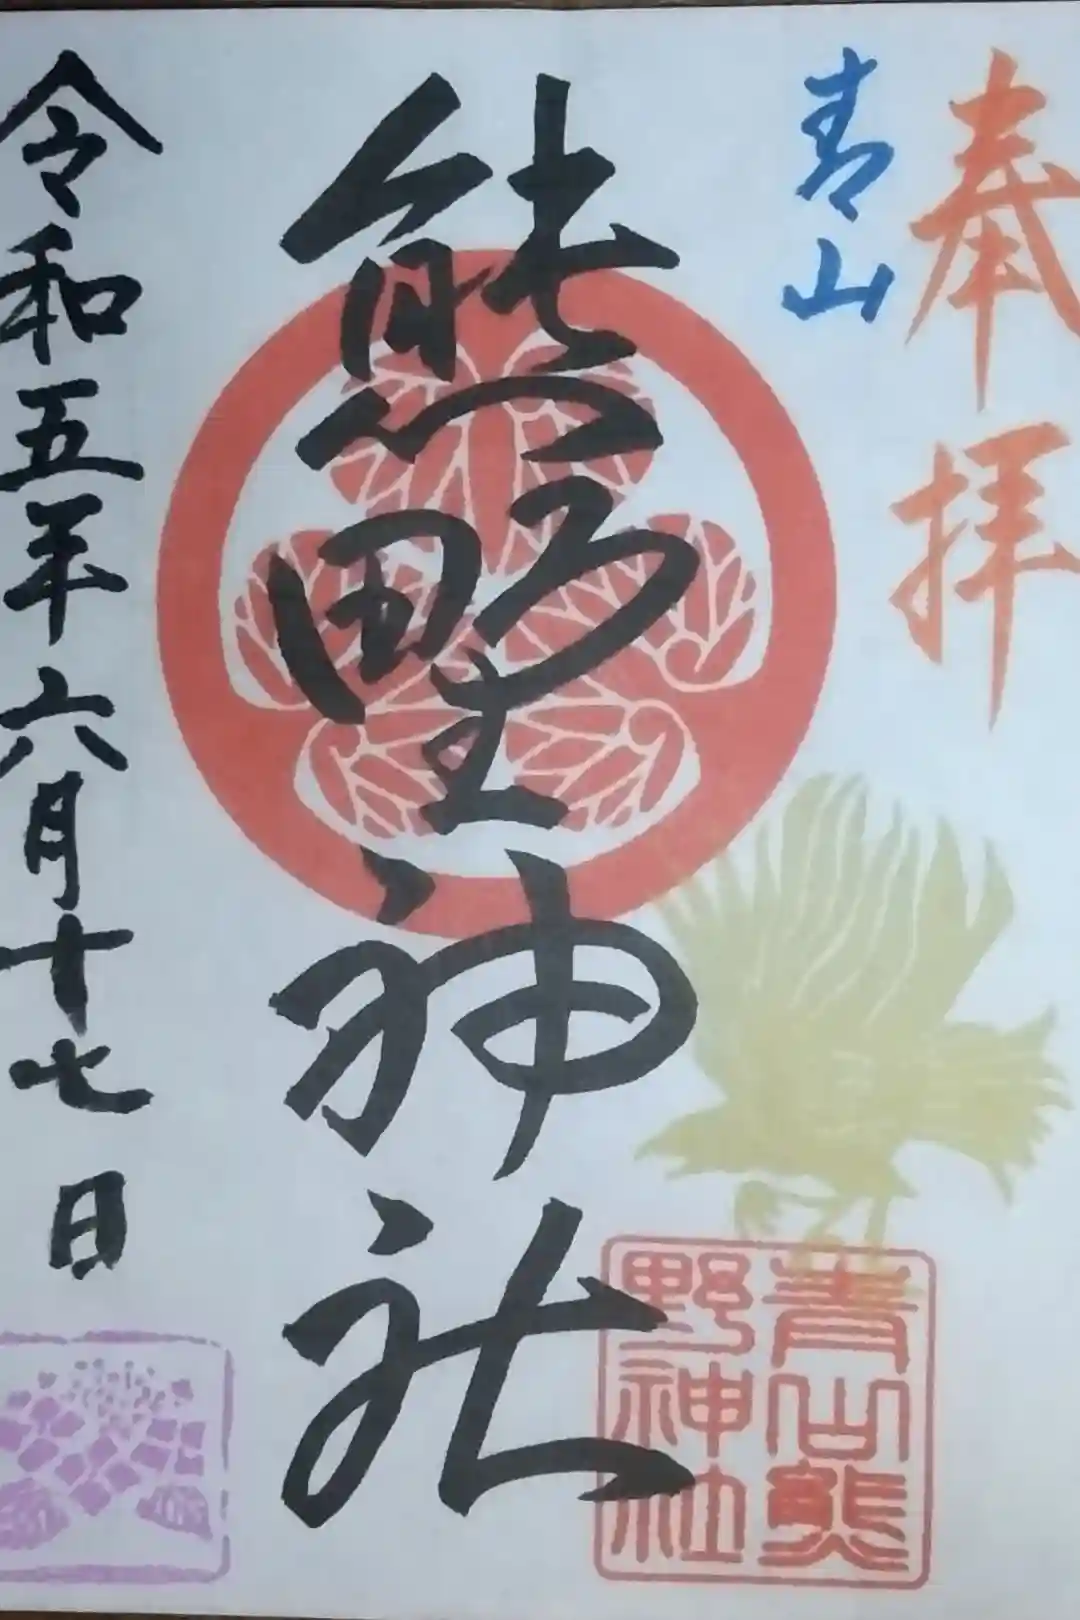 奉拝
青山
熊野神社
令和五年六月十七日
青山熊
野神社